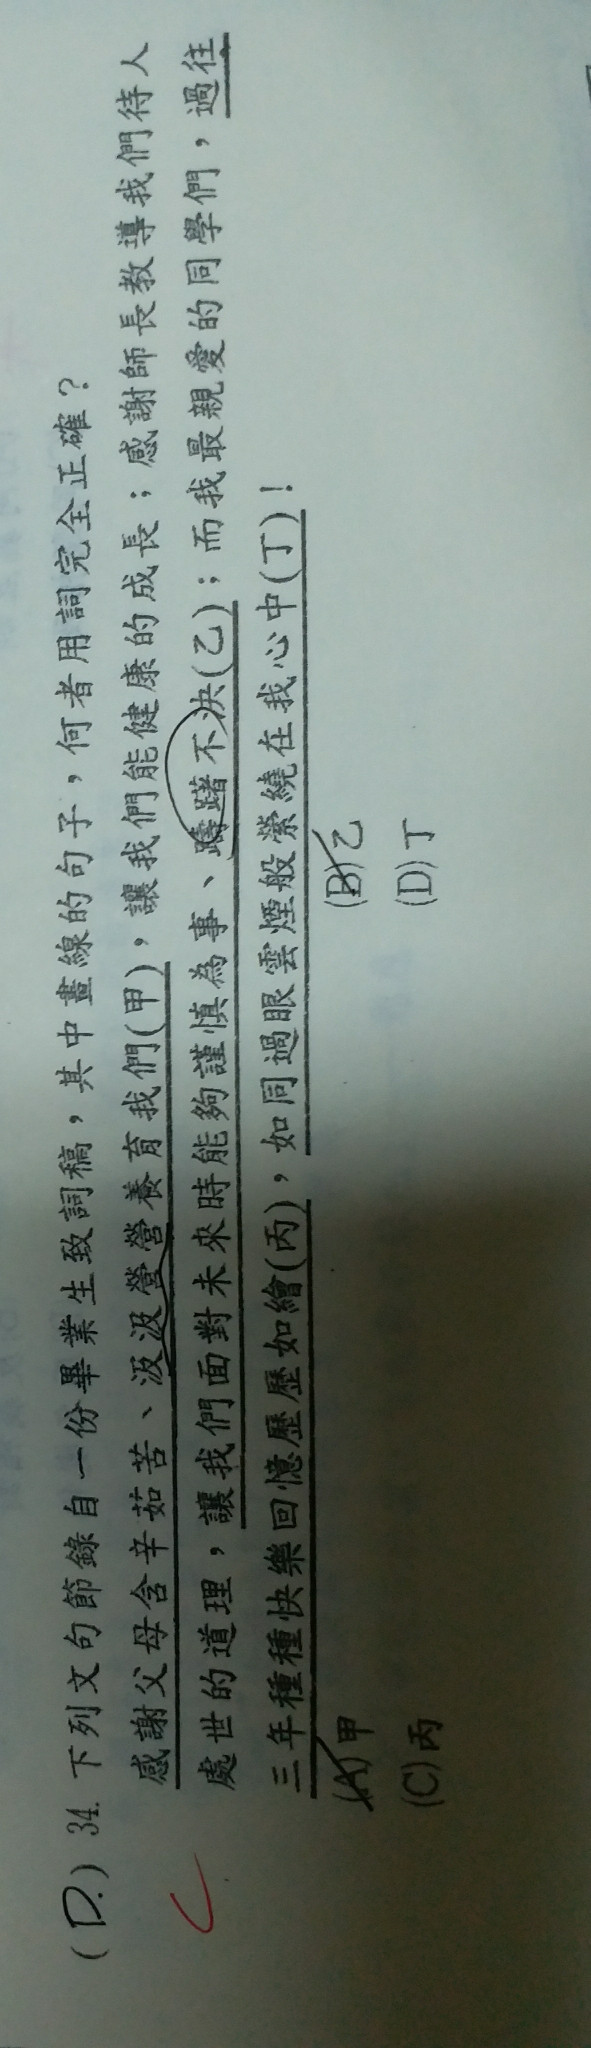 (D.) 34. 下列文句節錄自一份畢業生致詞稿，其中畫線的句子，何者用詞完全正確？
感謝父母含辛茹苦、汲汲營營養育我們(甲)，讓我們能健康的成長；感謝師長教導我們待人
處世的道理，讓我們面對未來時能夠謹慎為事、躊躇不決(乙)；而我最親愛的同學們，過往
三年種種快樂回憶歷歷如繪(丙)，如同過眼雲煙般縈繞在我心中(丁)！
(A)甲 (B)乙
(C)丙 (D)丁
C